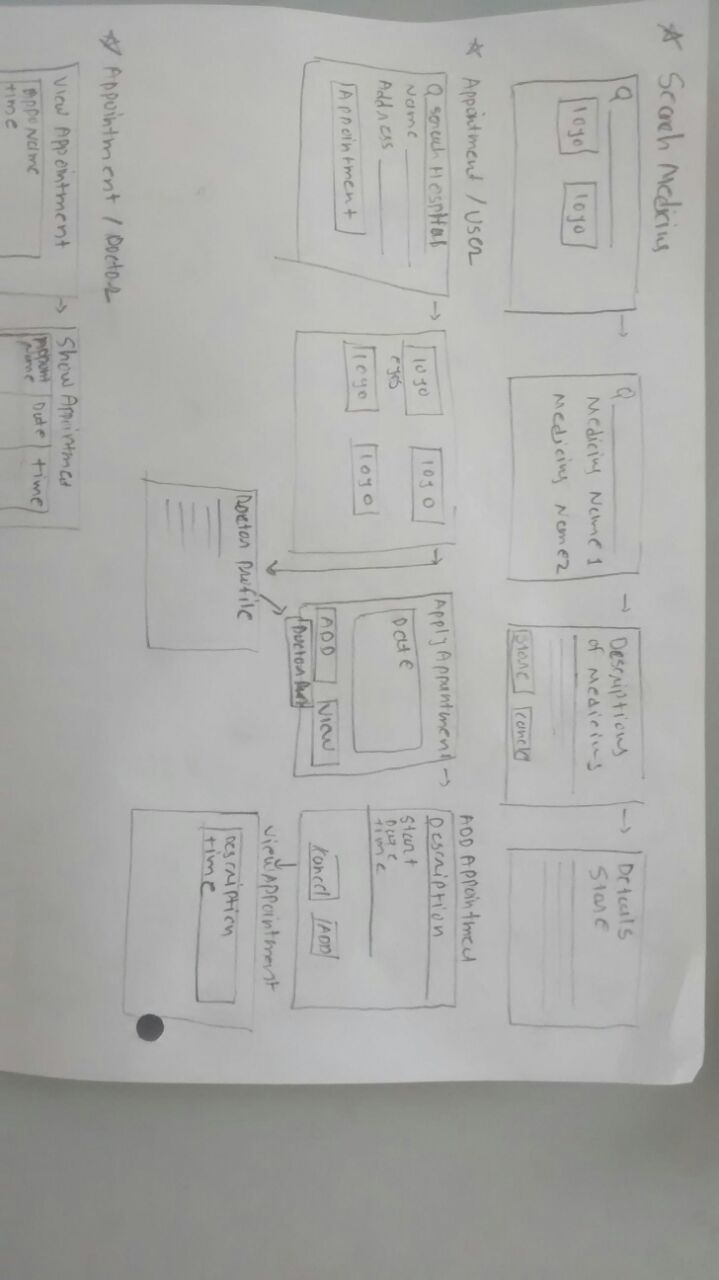 ☆ Search Medicins
Q
logo
logo
Q
Medicins Name 1
Medicins Name2
Descriptions
of medicins
Store
Cancle
Details
Store
☆ Appointment / User
Q serach Hospital
Name
Address
Appointment
logo
eyes
logo
logo
logo
Apply Appointment
Date
ADD
VIEW
Doctor Profile
ADD Appointmed
Description
Start
Date
time
Kancel
ADD
View Appointment
Description
time
☆ Appointment / Doctor
View Appointment
Appo Name
time
Show Appointment
Name
Date
time